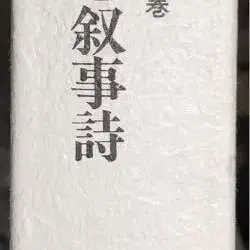 巻
叙事詩